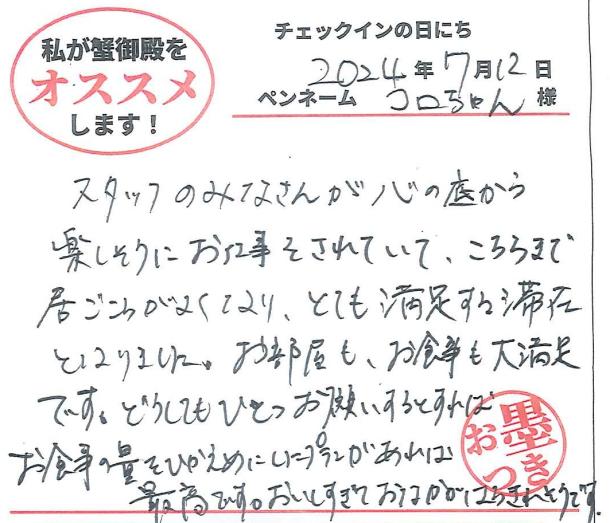 私が蟹御殿を
オススメ
します！
チェックインの日にち
2024年7月12日
ペンネーム コロちゃん 様
スタッフのみなさんが心の底から
楽しそうにお仕事をされていて、こちらまで
居ごこちがよくなり、とても満足する滞在
となりました。お部屋も、お食事も大満足
です。どうしてもひとつお願いするとすれば
お食事の量をひかえめにしたプランがあれば
最高です。おいしすぎておなかがはちきれそうです。
お墨つき